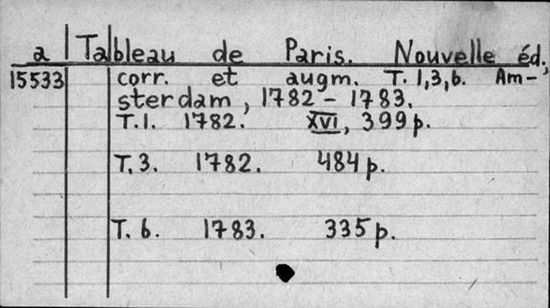 a Tableau de Paris. Nouvelle éd.,
15533 corr. et augm. T. 1,3,6. Am-
sterdam, 1782 - 1783.
T.1. 1782. XVI, 399 p.
T.3. 1782. 484 p.
T.6. 1783. 335 p.